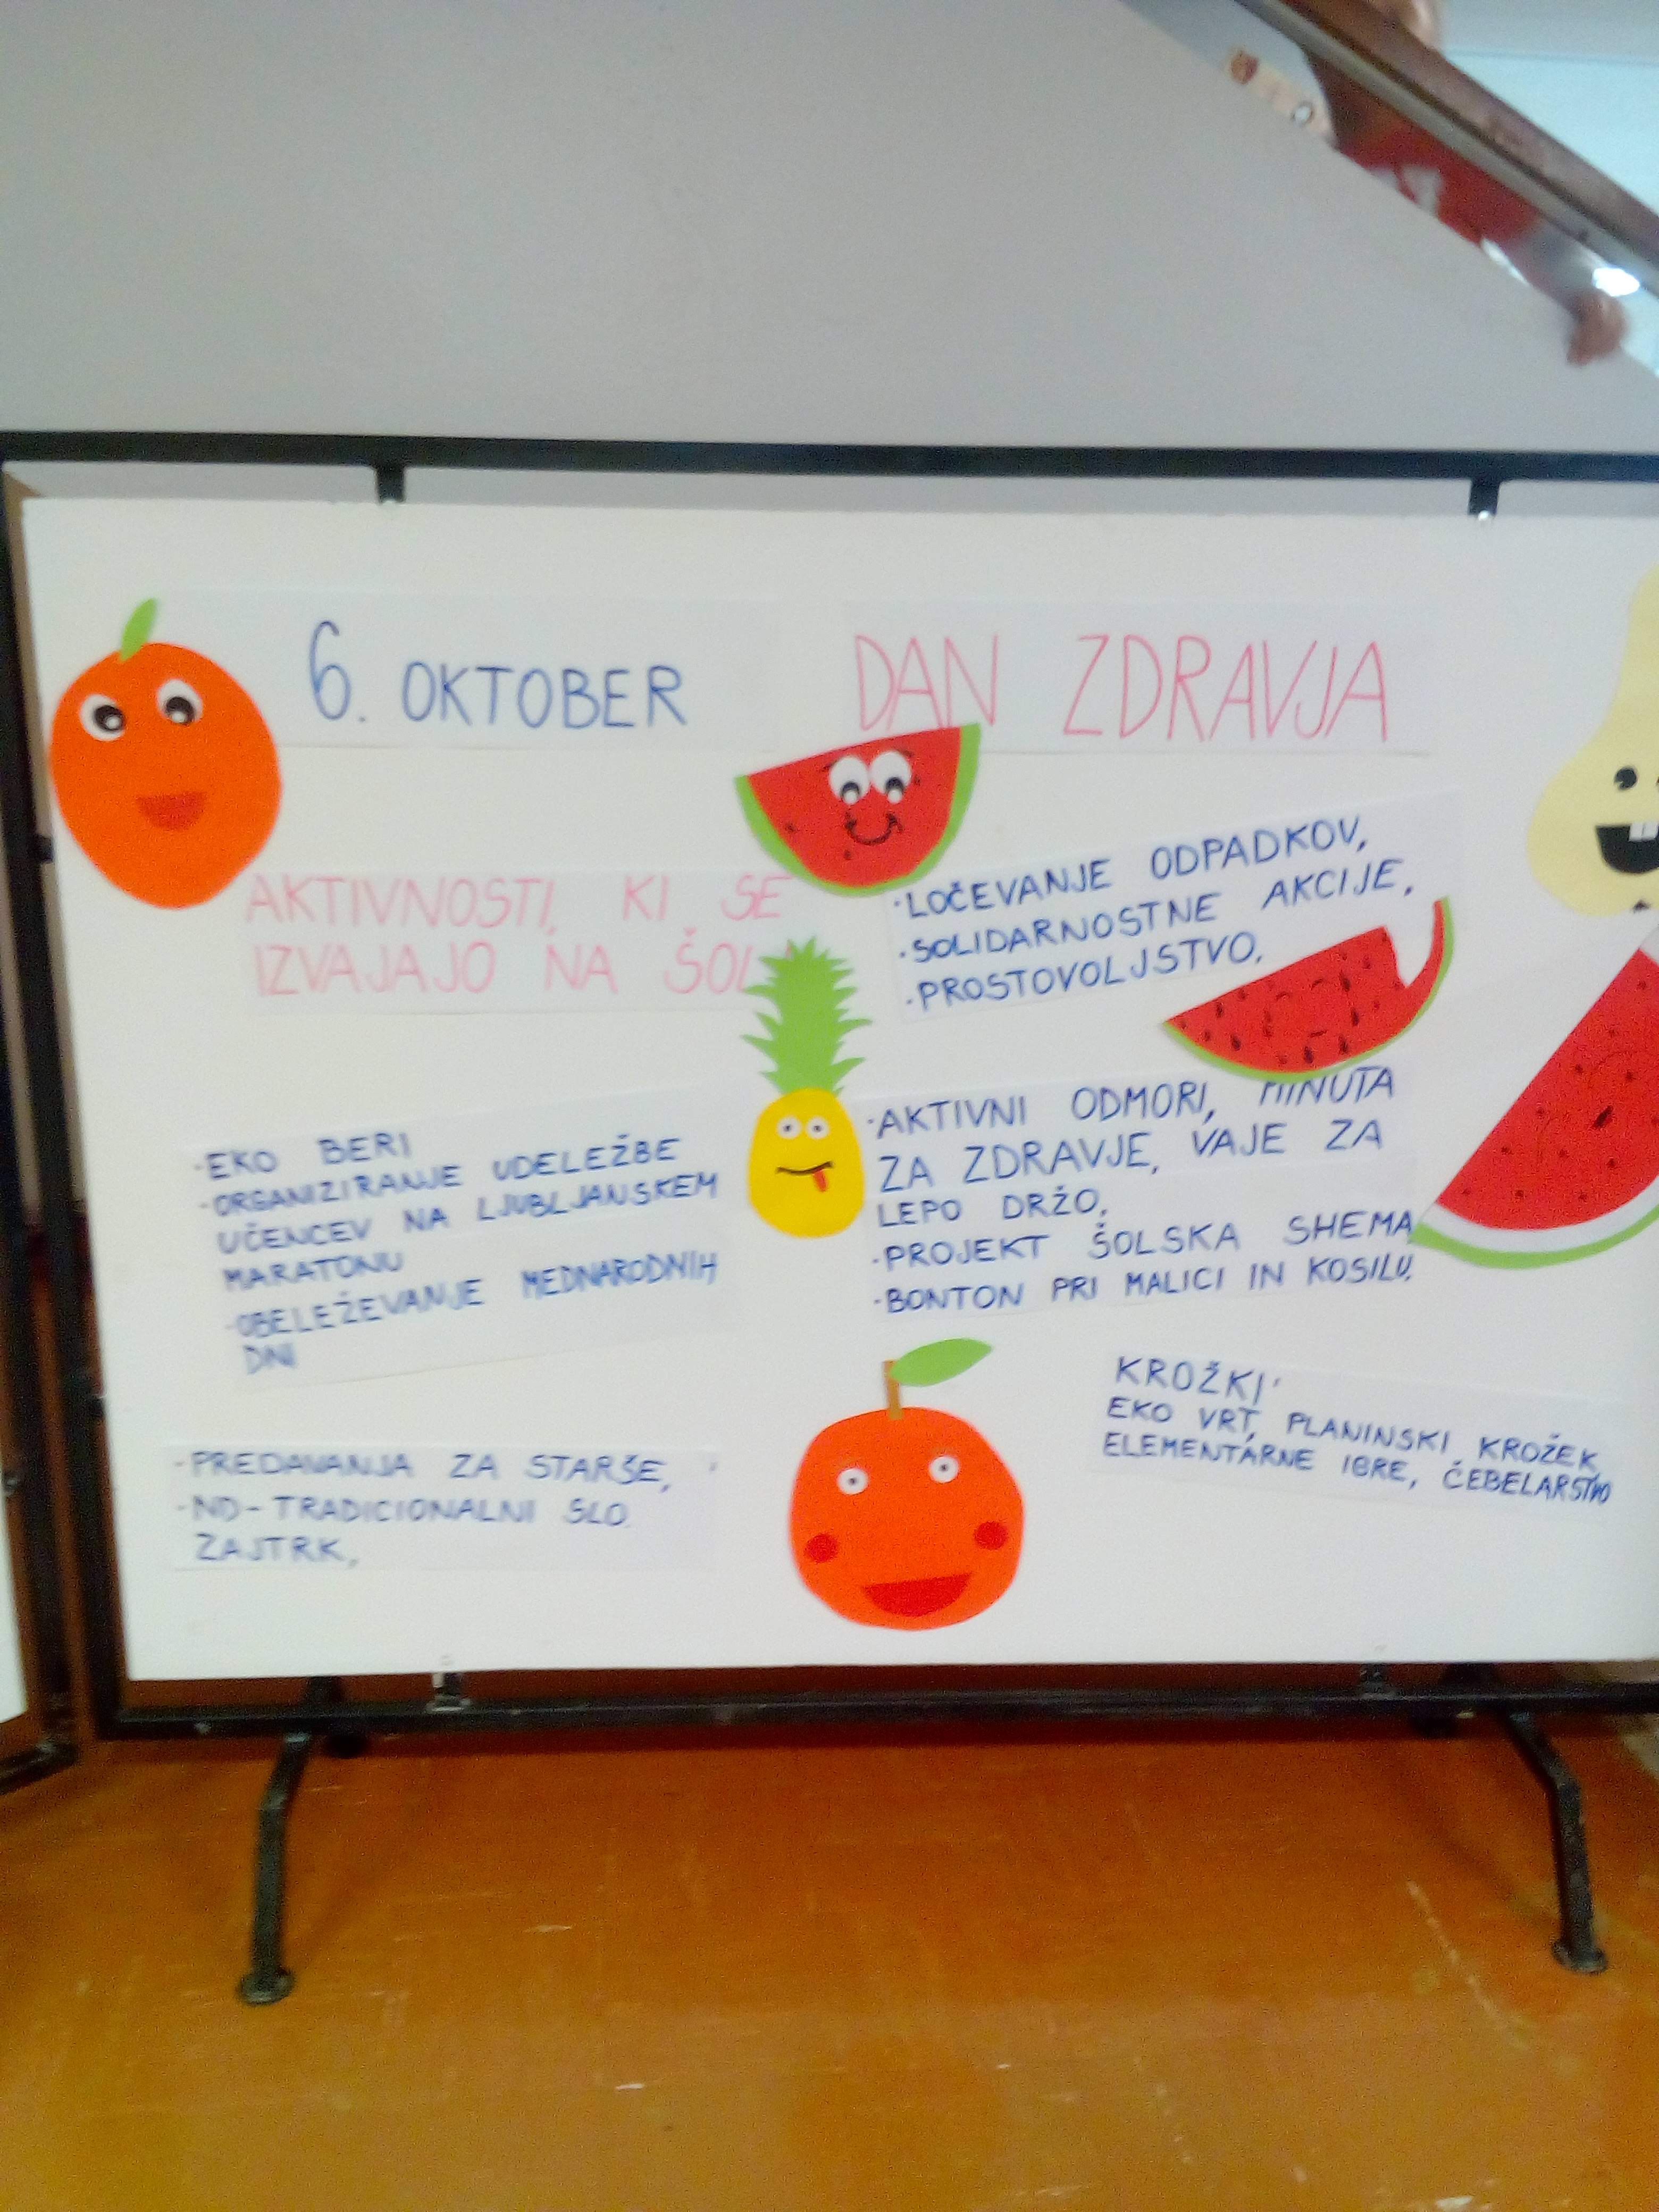 6. OKTOBER
DAN ZDRAVJA
AKTIVNOSTI, KI SE
IZVAJAJO NA ŠOL
·LOČEVANJE ODPADKOV,
·SOLIDARNOSTNE AKCIJE,
·PROSTOVOLJSTVO,
-EKO BERI
-ORGANIZIRANJE UDELEŽBE
UČENCEV NA LJUBLJANSKEM
MARATONU
-OBELEŽEVANJE MEDNARODNIH
DNI
·AKTIVNI ODMORI, MINUTA
ZA ZDRAVJE, VAJE ZA
LEPO DRŽO,
·PROJEKT ŠOLSKA SHEMA
·BONTON PRI MALICI IN KOSILU.
-PREDAVANJA ZA STARŠE,
-ND-TRADICIONALNI SLO.
ZAJTRK,
KROŽKI:
EKO VRT, PLANINSKI KROŽEK,
ELEMENTARNE IGRE, ČEBELARSTVO